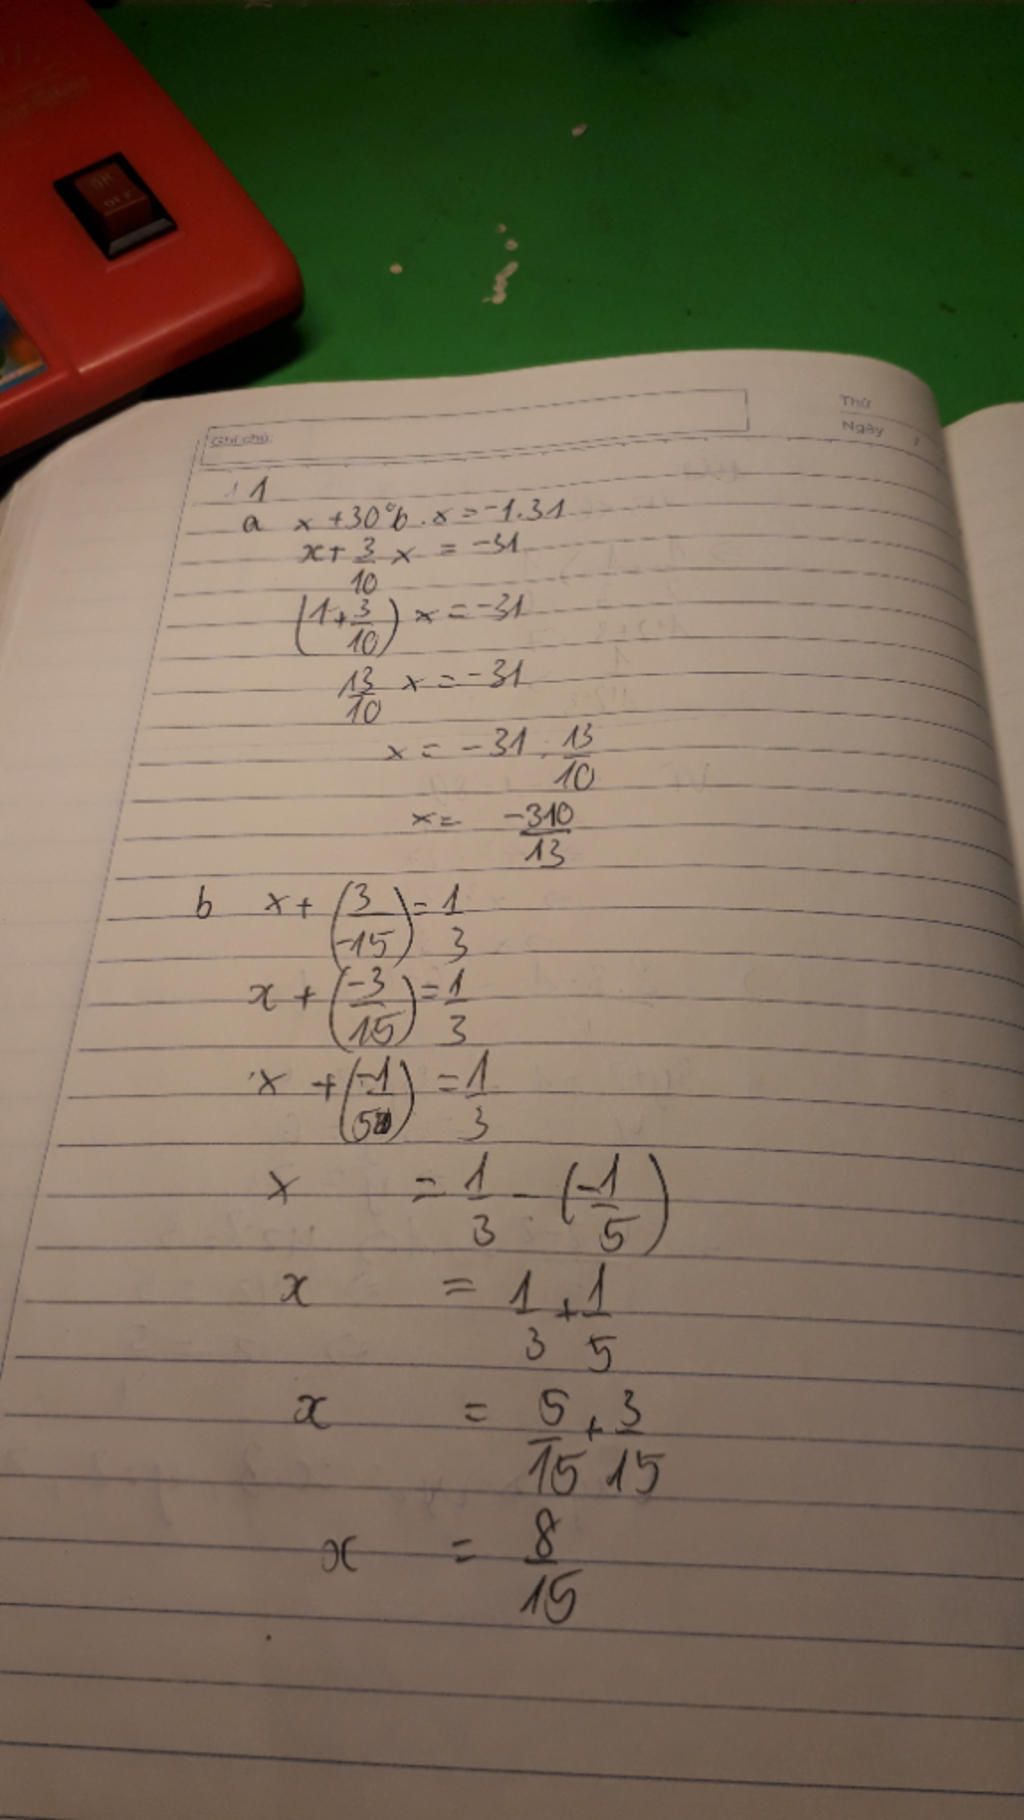 ON
OFF
Thứ
Ghi chú:
Ngày /
1
a x + 30% . x = -1.31
x + 3/10 x = -31
(1 + 3/10) x = -31
13/10 x = -31
x = -31 . 13/10
x = -310/13
b x + (3/-15) = 1/3
x + (-3/15) = 1/3
x + (-1/5) = 1/3
x = 1/3 - (-1/5)
x = 1/3 + 1/5
x = 5/15 + 3/15
x = 8/15